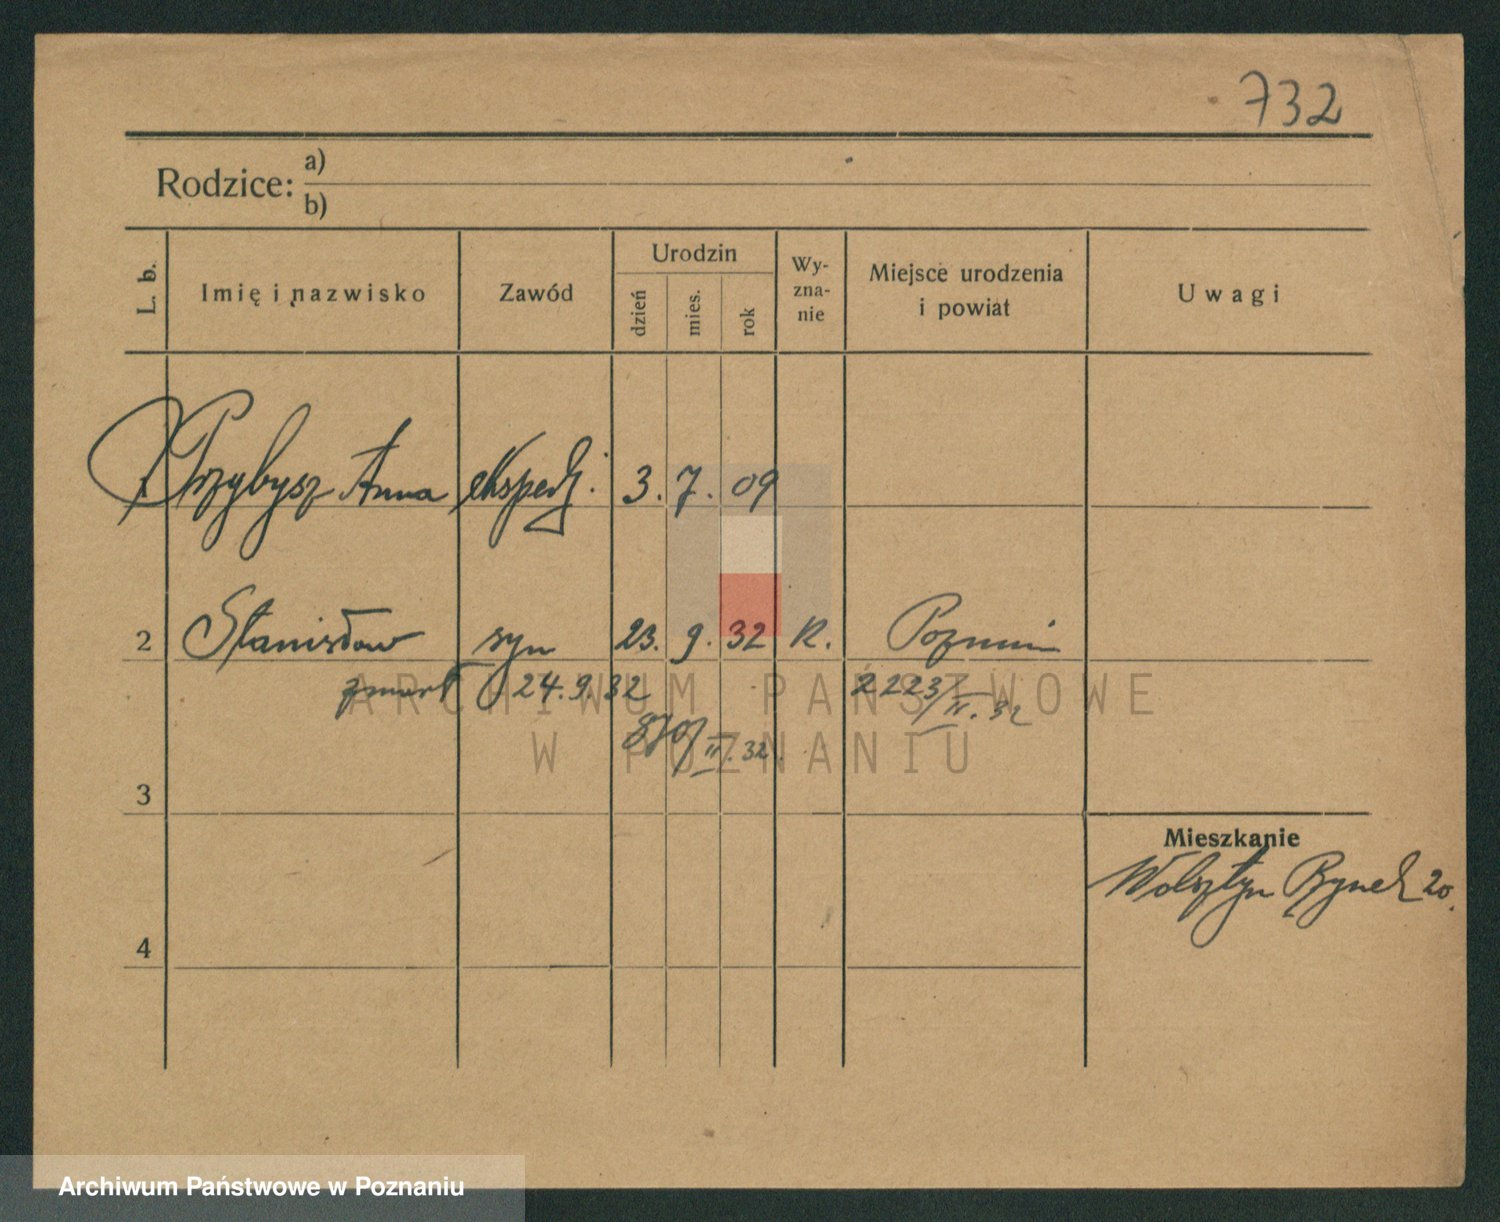 732
Rodzice: a)
b)
L. b. Imię i nazwisko Zawód Urodzin dzień mies. rok Wy-zna-nie Miejsce urodzenia i powiat Uwagi
Przybysz Anna ekspedj. 3. 7. 09
2 Stanisław syn 23. 9. 32 R. Poznań
zmarł 24.9.32 2223/II.32
870/II.32
3
Mieszkanie
Wolsztyn Rynek 20.
4
ARCHIWUM PAŃSTWOWE
W POZNANIU
Archiwum Państwowe w Poznaniu